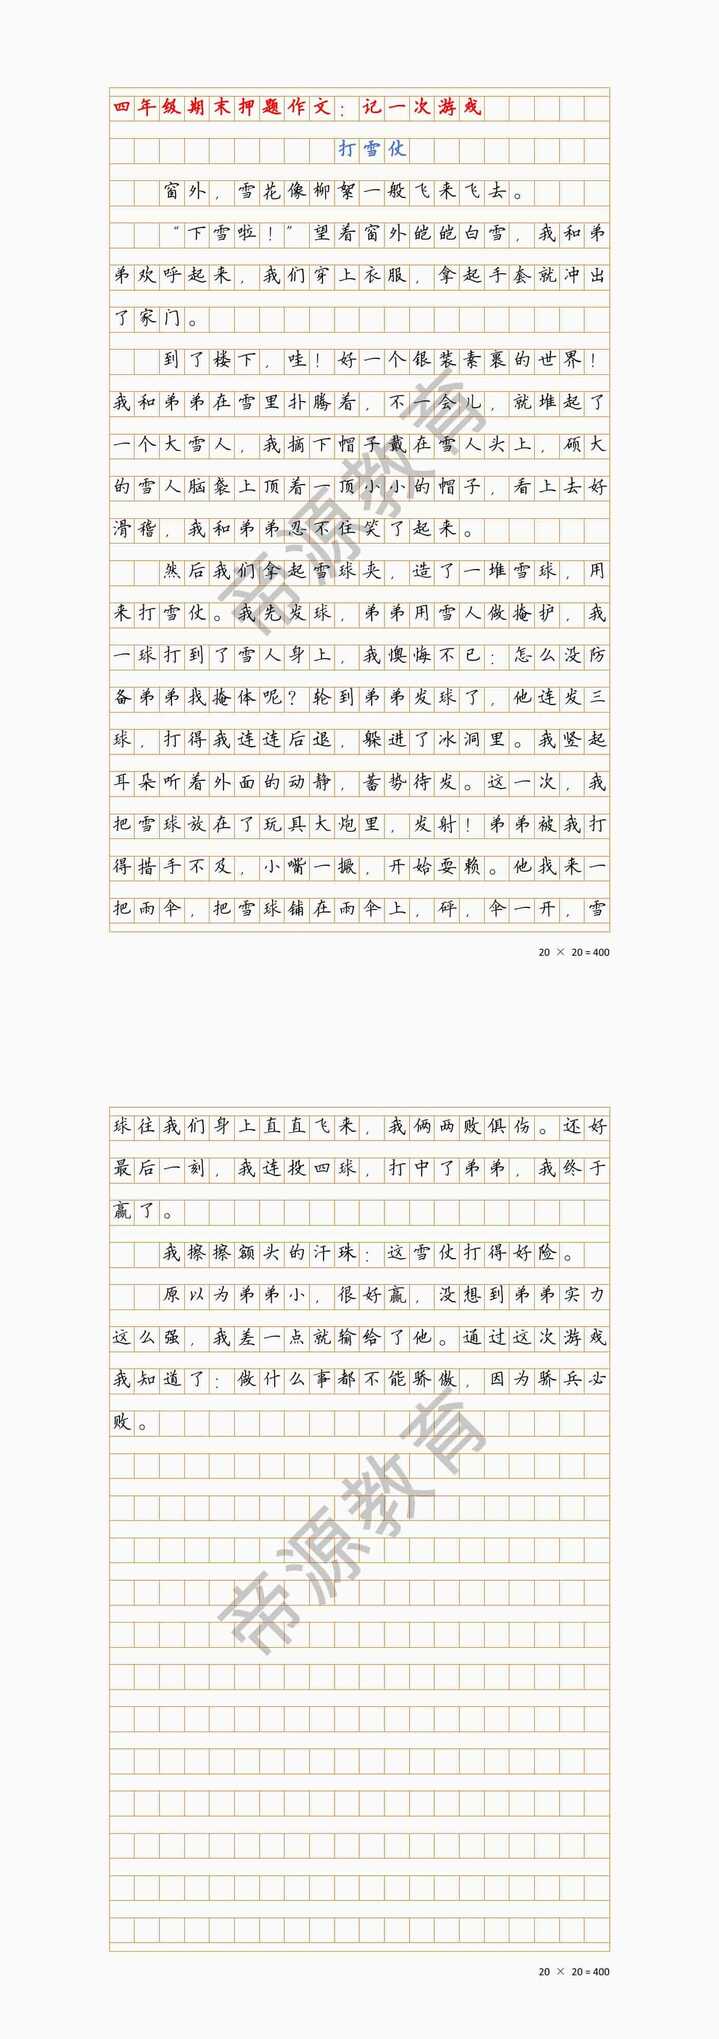 四年级期末押题作文：记一次游戏
打雪仗
窗外，雪花像柳絮一般飞来飞去。
“下雪啦！”望着窗外皑皑白雪，我和弟
弟欢呼起来，我们穿上衣服，拿起手套就冲出
了家门。
到了楼下，哇！好一个银装素裹的世界！
我和弟弟在雪里扑腾着，不一会儿，就堆起了
一个大雪人，我摘下帽子戴在雪人头上，硕大
的雪人脑袋上顶着一顶小小的帽子，看上去好
滑稽，我和弟弟忍不住笑了起来。
然后我们拿起雪球夹，造了一堆雪球，用
来打雪仗。我先发球，弟弟用雪人做掩护，我
一球打到了雪人身上，我懊悔不已：怎么没防
备弟弟找掩体呢？轮到弟弟发球了，他连发三
球，打得我连连后退，躲进了冰洞里。我竖起
耳朵听着外面的动静，蓄势待发。这一次，我
把雪球放在了玩具大炮里，发射！弟弟被我打
得措手不及，小嘴一撅，开始耍赖。他找来一
把雨伞，把雪球铺在雨伞上，砰，伞一开，雪
20 × 20=400
球往我们身上直直飞来，我俩两败俱伤。还好
最后一刻，我连投四球，打中了弟弟，我终于
赢了。
我擦擦额头的汗珠：这雪仗打得好险。
原以为弟弟小，很好赢，没想到弟弟实力
这么强，我差一点就输给了他。通过这次游戏
我知道了：做什么事都不能骄傲，因为骄兵必
败。
20 × 20=400
帝源教育
帝源教育